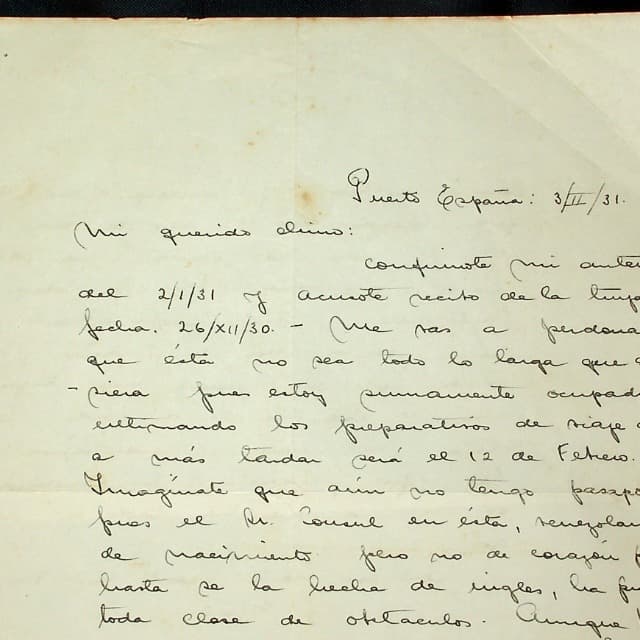 Puerto España: 3/II/31.
Mi querido chino:
confírmote mi anter
del 2/1/31 y acusote recibo de la tuya
fecha. 26/XII/30. - Me vas a perdona
que ésta no sea todo lo larga que q
- siera pues estoy sumamente ocupad
ultimando los preparativos de viaje q
a más tardar será el 12 de Febrero.
Imagínate que aún no tengo pasapo
pues el Sr. Consul en ésta, venezolan
de nacimiento pero no de corazón p
hasta se la hecha de ingles, ha pu
toda clase de obstaculos. Aunque